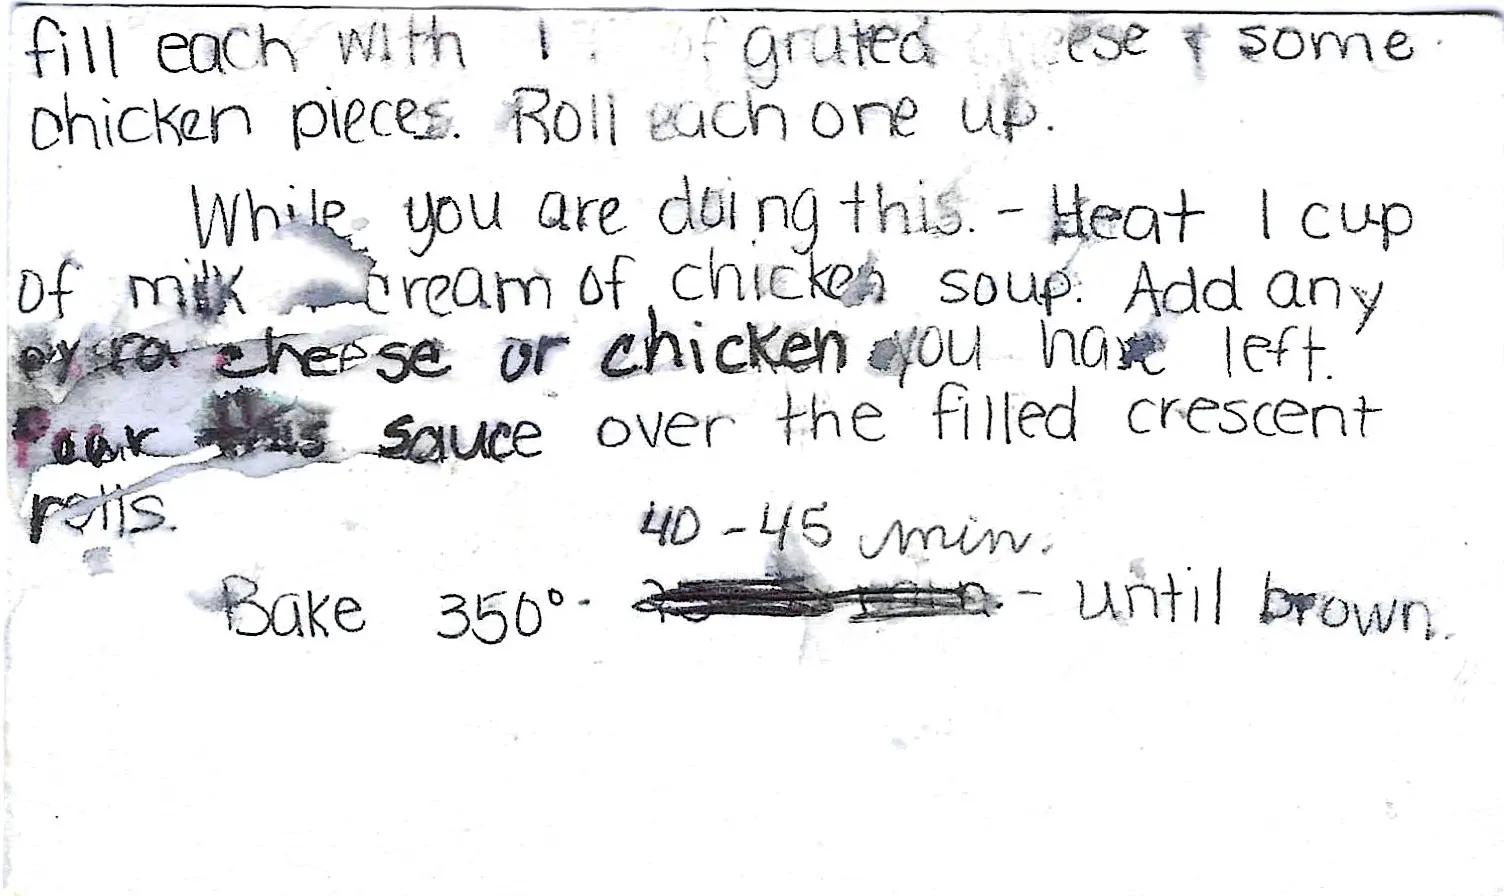 fill each with 1 of grated cheese & some
chicken pieces. Roll each one up.
While you are doing this. - Heat 1 cup
of milk cream of chicken soup. Add any
extra cheese or chicken you have left.
Pour this sauce over the filled crescent
rolls.
40 - 45 min.
Bake 350° - until brown.